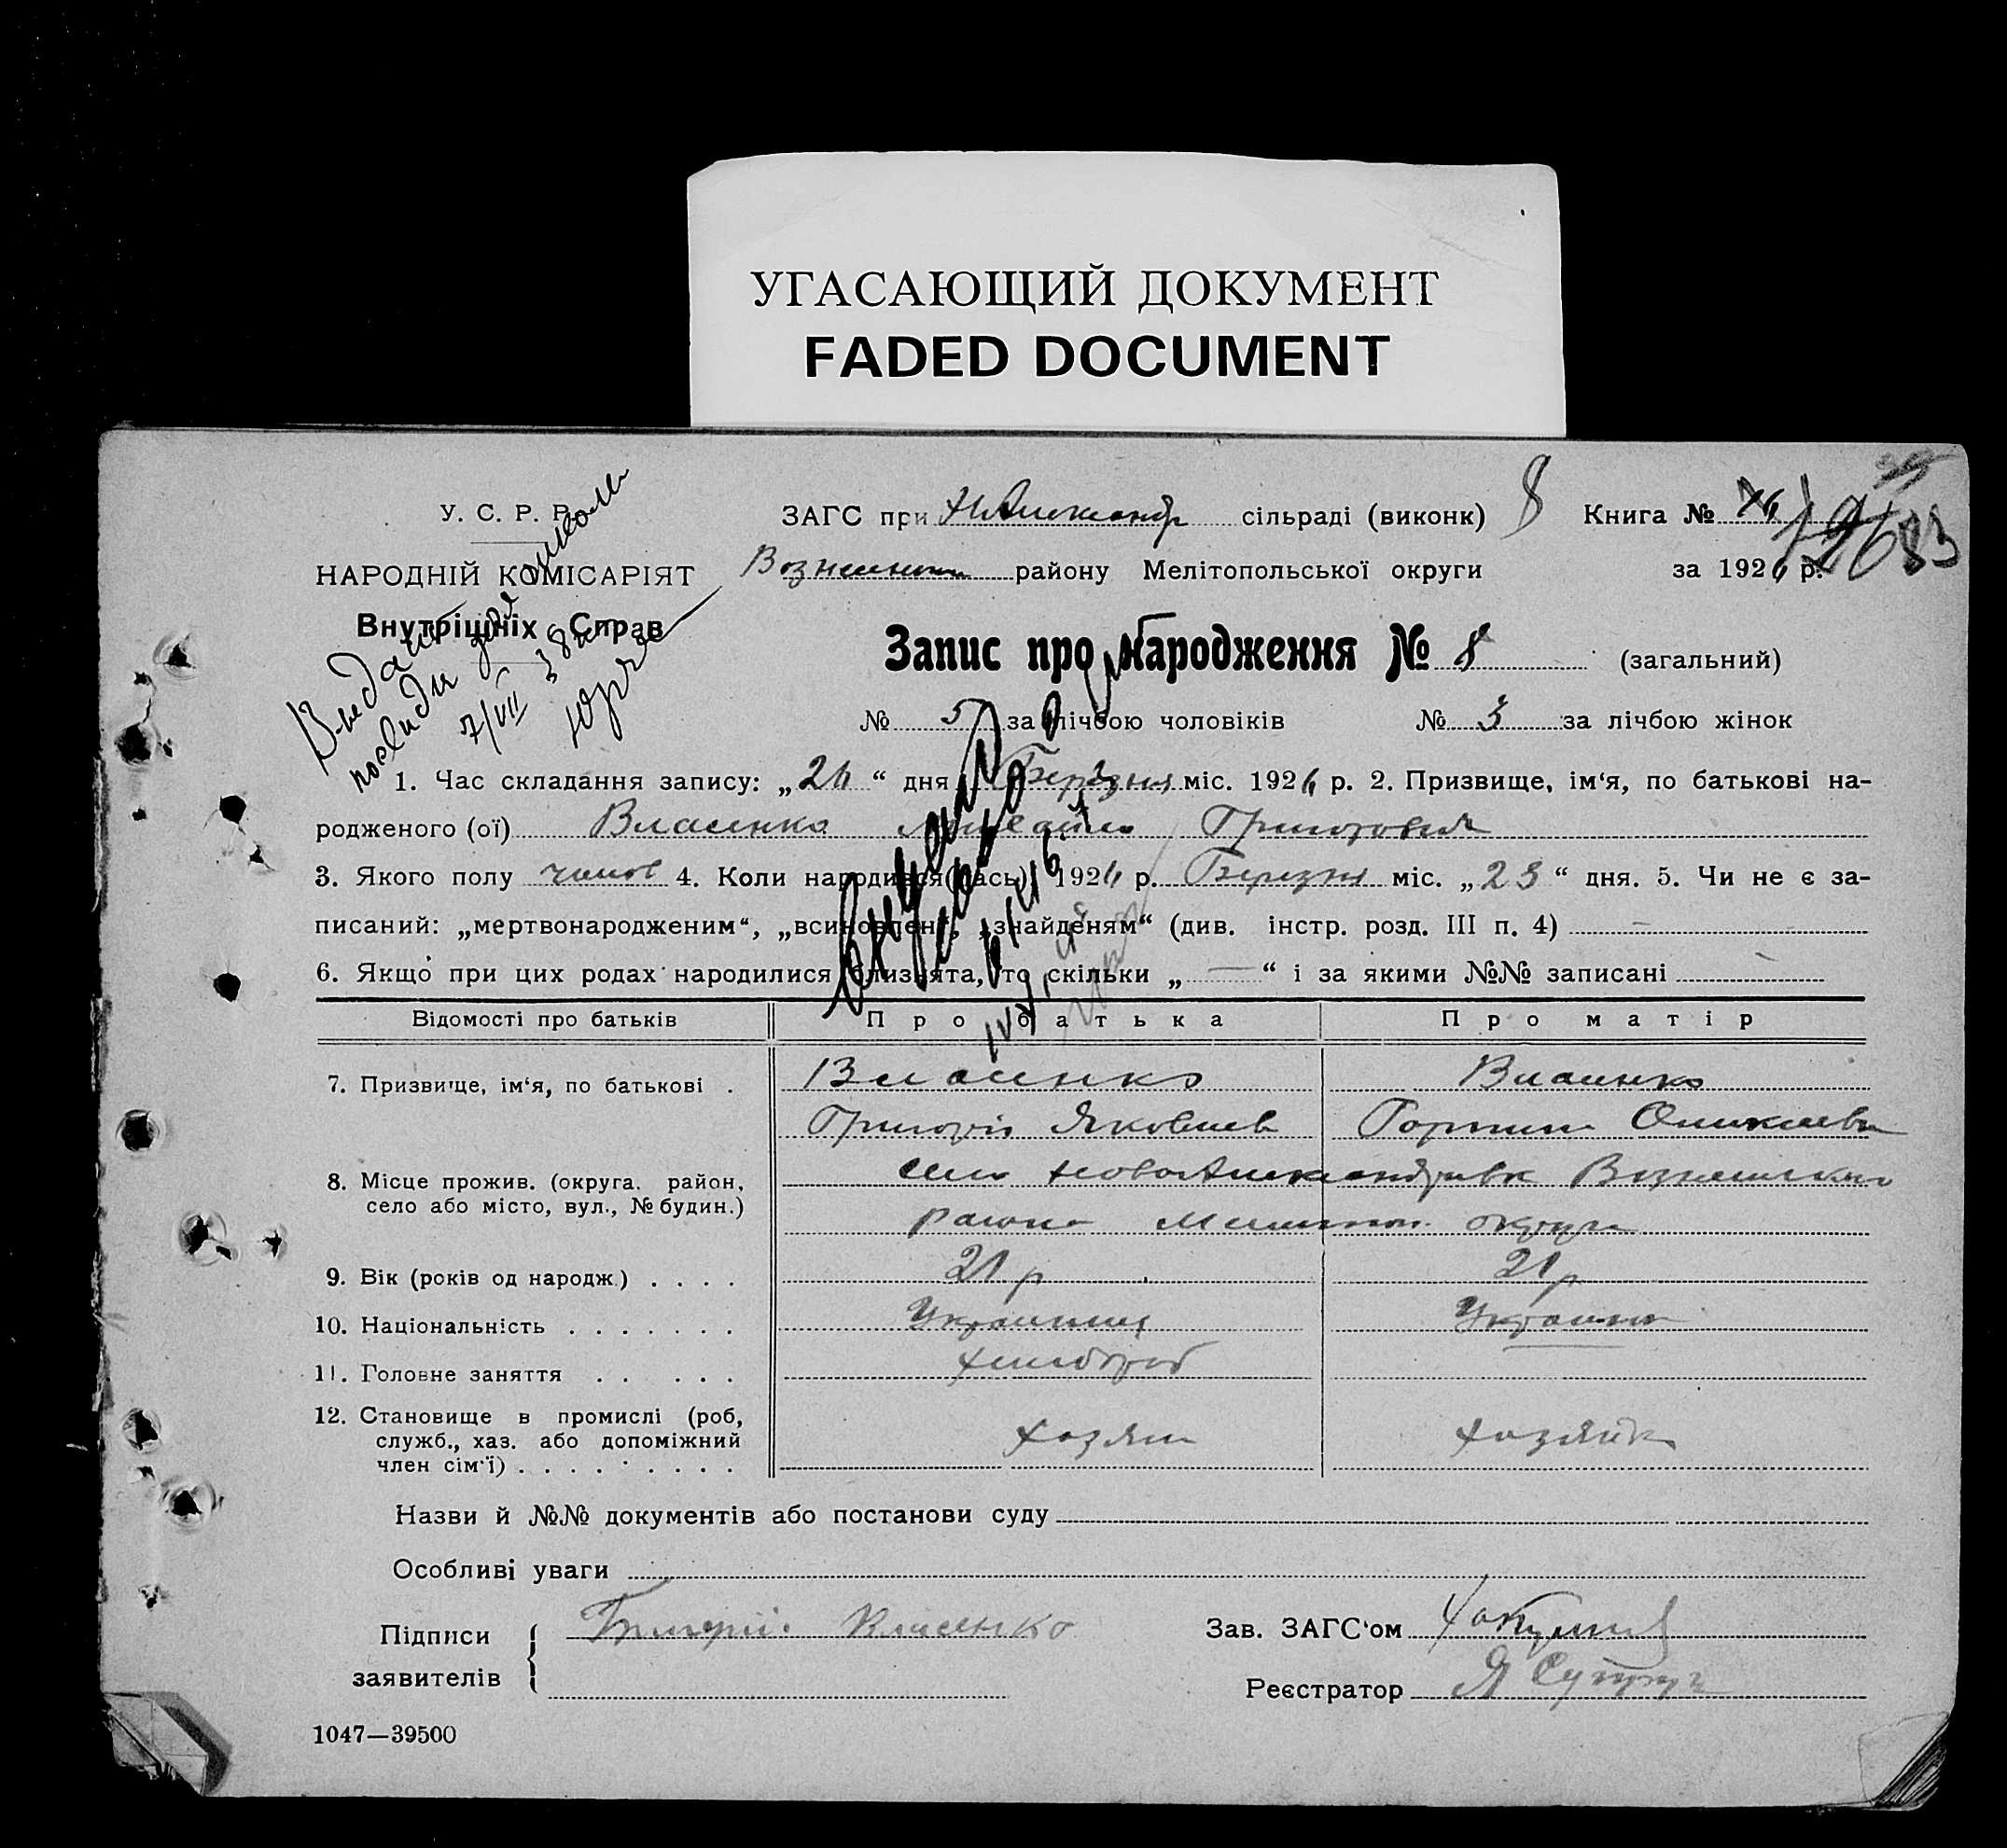 УГАСАЮЩИЙ ДОКУМЕНТ
FADED DOCUMENT
У. С. Р. Р.
НАРОДНІЙ КОМІСАРІЯТ
Внутрішніх Справ
ЗАГС при Н Александр сільраді (виконк) 8 Книга №
району Мелітопольської округи за 1926 р.
83
Запис про народження № 8 (загальний)
№ 5 за лічбою чоловіків № 3 за лічбою жінок
7/VII 38
1. Час складання запису: „ “ дня Березня міс. 1926 р. 2. Призвище, ім‘я, по батькові на-
родженого (ої) Власенко Григорович
3. Якого полу чолов 4. Коли народився(лась) 1926 р. Березня міс. „23“ дня. 5. Чи не є за-
писаний: „мертвонародженим“, „всиновлен“, „знайденям“ (див. інстр. розд. III п. 4) –
6. Якщо при цих родах народилися близнята, то скільки „—“ і за якими №№ записані –
Відомості про батьків Про батька Про матір
7. Призвище, ім‘я, по батькові . Власенко Власенко
Григорій Яковлев
8. Місце прожив. (округа, район, село НовоАлександрівк
село або місто, вул., № будин.) района округи
9. Вік (років од народж.) . . . . 21 р 21 р
10. Національність . . . . . . . Украинец Украинк
11. Головне заняття . . . . . . хлебороб
12. Становище в промислі (роб,
служб., хаз. або допоміжний хозяин хозяйк
член сім‘ї) . . . . . . . . .
Назви й №№ документів або постанови суду
Особливі уваги
Підписи Власенко Зав. ЗАГС‘ом
заявителів Реєстратор
1047—39500